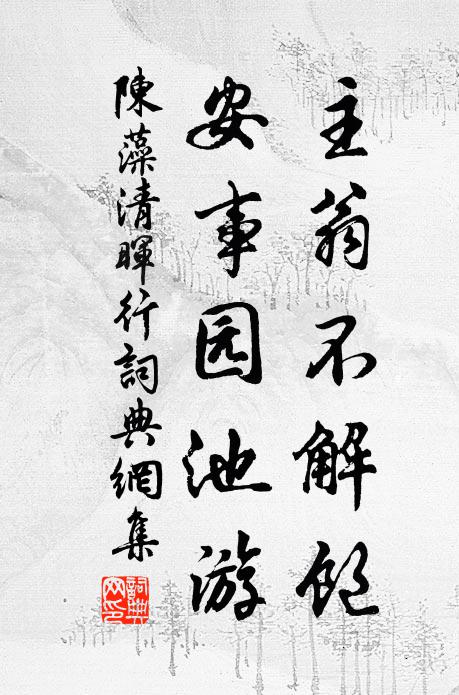 主翁不解飲
安事园池游
陳藻清暉行詞典網集
詞典
网印